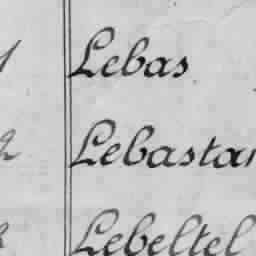 1 Lebas
2 Lebastar
Lebeltel